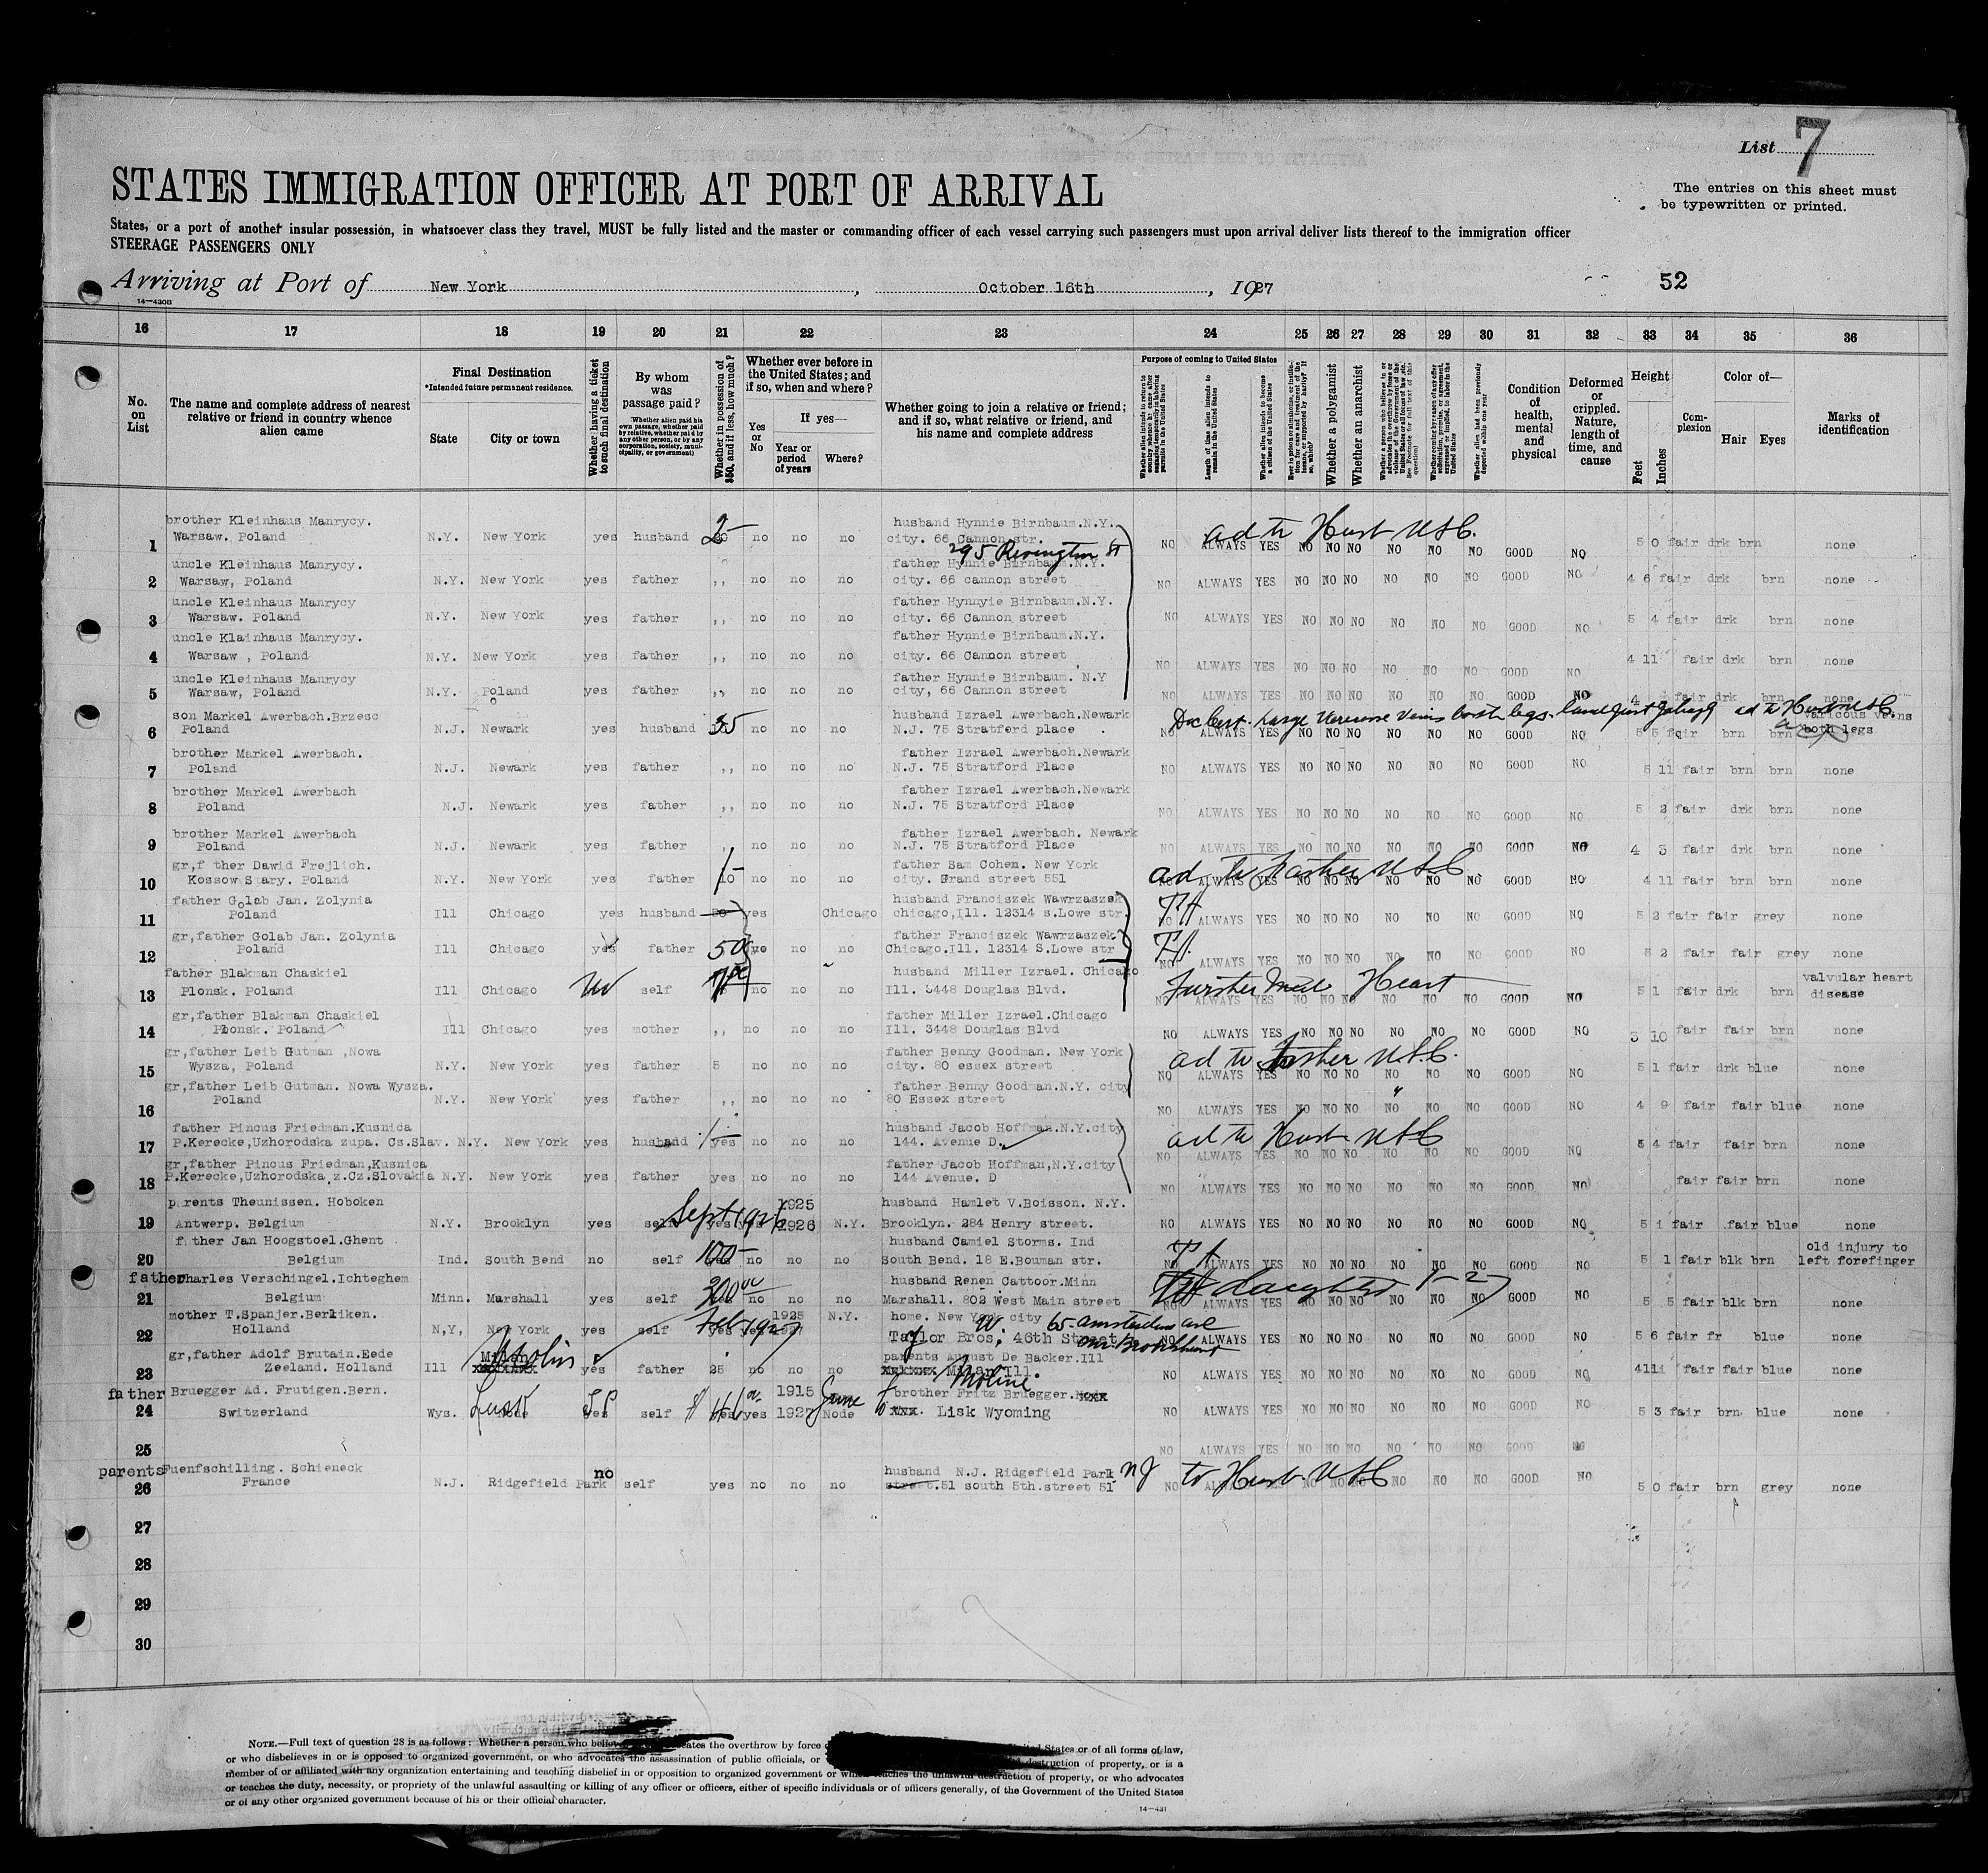 List 7
STATES IMMIGRATION OFFICER AT PORT OF ARRIVAL
The entries on this sheet must
be typewritten or printed.
States, or a port of another insular possession, in whatsoever class they travel, MUST be fully listed and the master or commanding officer of each vessel carrying such passengers must upon arrival deliver lists thereof to the immigration officer
STEERAGE PASSENGERS ONLY
Arriving at Port of New York, October 16th, 1927 52
14—430B
16 17 18 19 20 21 22 23 24 25 26 27 28 29 30 31 32 33 34 35 36
No. on List
The name and complete address of nearest relative or friend in country whence alien came
Final Destination
*Intended future permanent residence.
State City or town
Whether having a ticket to such final destination
By whom was passage paid?
Whether in possession of $50, and if less, how much?
Whether ever before in the United States; and if so, when and where?
Yes or No
If yes—
Year or period of years Where?
Whether going to join a relative or friend; and if so, what relative or friend, and his name and complete address
Purpose of coming to United States
Length of time alien intends to remain in the United States
Whether alien intends to become a citizen of the United States
Whether a polygamist
Whether an anarchist
Condition of health, mental and physical
Deformed or crippled. Nature, length of time, and cause
Height
Feet Inches
Complexion
Color of—
Hair Eyes
Marks of identification
brother Kleinhaus Manrycy. husband Hynnie Birnbaum.N.Y.
1 Warsaw. Poland N.Y. New York yes husband no no no city. 66 Cannon str. NO ALWAYS YES NO NO NO NO NO NO GOOD NO 5 0 fair drk brn none
ad to Husb USC.
295 Rivington St
uncle Kleinhaus Manrycy. father Hynnie Birnbaum.N.Y.
2 Warsaw, Poland N.Y. New York yes father ,, no no no city. 66 cannon street NO ALWAYS YES NO NO NO NO NO NO GOOD NO 4 6 fair drk brn none
uncle Kleinhaus Manrycy father Hynnyie Birnbaum.N.Y.
3 Warsaw. Poland N.Y. New York yes father ,, no no no city. 66 Cannon street NO ALWAYS YES NO NO NO NO NO NO GOOD NO 5 4 fair drk brn none
uncle Klainhaus Manrycy. father Hynnie Birnbaum.N.Y.
4 Warsaw , Poland N.Y. New York yes father ,, no no no city. 66 Cannon street NO ALWAYS YES NO NO NO NO NO NO GOOD NO 4 11 fair drk brn none
uncle Kleinhaus Manrycy father Hynnie Birnbaum. N.Y
5 Warsaw, Poland N.Y. Poland yes father ,, no no no city, 66 Cannon street NO ALWAYS YES NO NO NO NO NO NO GOOD NO 4 fair drk brn none
son Markel Awerbach.Brzesc husband Izrael Awerbach.Newark
Doc Cert. Large Varicose Veins both legs. ad to Husb USC.
6 Poland N.J. Newark yes husband 35 no no no N.J. 75 Stratford place ALWAYS YES NO NO NO NO NO NO GOOD NO 5 5 fair brn brn varicous veins both legs
brother Markel Awerbach. father Izrael Awerbach.Newark
7 Poland N.J. Newark yes father ,, no no no N.J. 75 Stratford Place NO ALWAYS YES NO NO NO NO NO NO GOOD NO 5 11 fair brn brn none
brother Markel Awerbach father Izrael Awerbach.Newark
8 Poland N.J. Newark yes father ,, no no no N.J. 75 Stratford Place NO ALWAYS YES NO NO NO NO NO NO GOOD NO 5 2 fair drk brn none
brother Markel Awerbach father Izrael Awerbach. Newark
9 Poland N.J. Newark yes father ,, no no no N.J. 75 Stratford Place NO ALWAYS YES NO NO NO NO NO NO GOOD NO 4 3 fair drk brn none
gr,f ther Dawid Frejlich. father Sam Cohen. New York
ad to Father USC
10 Kossow Stary. Poland N.Y. New York yes father 10 no no no city. Grand street 551 NO ALWAYS YES NO NO NO NO NO NO GOOD NO 4 11 fair brn brn none
father Golab Jan. Zolynia husband Franciszek Wawrzaszek
11 Poland Ill Chicago yes husband yes Chicago chicago,Ill. 12314 s.Lowe str. NO ALWAYS YES NO NO NO NO NO NO GOOD NO 5 2 fair fair grey none
gr,father Golab Jan. Zolynia father Franciszek Wawrzaszek.
12 Poland Ill Chicago yes father 50 no no Chicago.Ill. 12314 S.Lowe str NO ALWAYS YES NO NO NO NO NO NO GOOD NO 5 2 fair fair grey none
father Blakman Chaskiel husband Miller Izrael. Chicago
Further Med Heart
13 Plonsk. Poland Ill Chicago self no no no Ill. 3448 Douglas Blvd. ALWAYS YES NO NO NO NO NO NO GOOD NO 5 1 fair drk brn valvular heart disease
gr,father Blakman Chaskiel father Miller Izrael.Chicago
14 Plonsk. Poland Ill Chicago yes mother ,, no no no Ill. 3448 Douglas Blvd NO ALWAYS YES NO NO NO NO NO NO GOOD NO 3 10 fair fair brn none
gr,father Leib Gutman ,Nowa father Benny Goodman. New York
ad to father USC.
15 Wysza, Poland N.Y. New York yes father 5 no no no city. 80 essex street NO ALWAYS YES NO NO NO NO NO NO GOOD NO 5 1 fair drk blue none
gr,father Leib Gutman. Nowa Wysza. father Benny Goodman.N.Y. city
16 Poland N.Y. New York yes father ,, no no no 80 Essex street NO ALWAYS YES NO NO NO NO NO NO GOOD NO 4 9 fair fair blue none
father Pincus Friedman.Kusnica husband Jacob Hoffman.N.Y.city
ad to Husb USC
17 P.Kerecke,Uzhorodska zupa. Cs.Slav. N.Y. New York yes husband yes no no no 144. Avenue D. NO ALWAYS YES NO NO NO NO NO NO GOOD NO 5 4 fair fair brn none
gr,father Pincus Friedman,Kusnica father Jacob Hoffman,N.Y.city
18 P.Kerecke,Uzhorodska z.Cz.Slovakia N.Y. New York yes father yes no no no 144 Avenue. D NO ALWAYS YES NO NO NO NO NO NO GOOD NO fair fair brn none
parents Theunissen. Hoboken 1925 husband Hamlet V.Boisson. N.Y.
19 Antwerp. Belgium N.Y. Brooklyn yes self yes yes 1926 N.Y. Brooklyn. 284 Henry street. NO ALWAYS YES NO NO NO NO NO NO GOOD NO 5 1 fair fair blue none
f ther Jan Hoogstoel.Ghent husband Camiel Storms. Ind
20 Belgium Ind. South Bend no self 100— no no no South Bend. 18 E.Bouman str. NO ALWAYS YES NO NO NO NO NO NO GOOD NO 5 1 fair blk brn old injury to left forefinger
father Charles Verschingel.Ichteghem husband Renen Cattoor.Minn
21 Belgium Minn. Marshall yes self no no no Marshall. 802 West Main street NO NO NO NO NO NO NO GOOD NO 5 5 fair blk brn none
mother T.Spanjer.Berkiken. 1925 N.Y. home. New York city 65 Amsterdam ave
22 Holland N,Y, New York yes self yes yes Taylor Bros. 46th Street NO ALWAYS YES NO NO NO NO NO NO GOOD NO 5 6 fair fr blue none
gr,father Adolf Brutain.Eede Milan parents August De Backer.Ill
23 Zeeland. Holland Ill Moline yes father 25 no no no Milan Ill. Moline. NO ALWAYS YES NO NO NO NO NO NO GOOD NO 4 11 fair fair blue none
father Bruegger Ad. Frutigen.Bern. 1915 June brother Fritz Bruegger.
24 Switzerland Wys. Lusk Node yes self yes yes 1927 Node Lisk Wyoming NO ALWAYS YES NO NO NO NO NO NO GOOD NO 5 3 fair brn blue none
25 NO ALWAYS YES NO NO NO NO NO NO GOOD NO
parents Fuenfschilling. Schieneck no husband N.J. Ridgefield Park NJ to Husb. USC
26 France N.J. Ridgefield Park self yes no no no street.51 south 5th.street 51 NO NO NO NO NO NO NO GOOD NO 5 0 fair brn grey none
27
28
29
30
NOTE.—Full text of question 28 is as follows: Whether a person who believes the overthrow by force States or of all forms of law,
or who disbelieves in or is opposed to organized government, or who advocates the assassination of public officials, or destruction of property, or is a
member of or affiliated with any organization entertaining and teaching disbelief in or opposition to organized government or which teaches the unlawful destruction of property, or who advocates
or teaches the duty, necessity, or propriety of the unlawful assaulting or killing of any officer or officers, either of specific individuals or of officers generally, of the Government of the United States
or of any other organized government because of his or their official character.
14—431